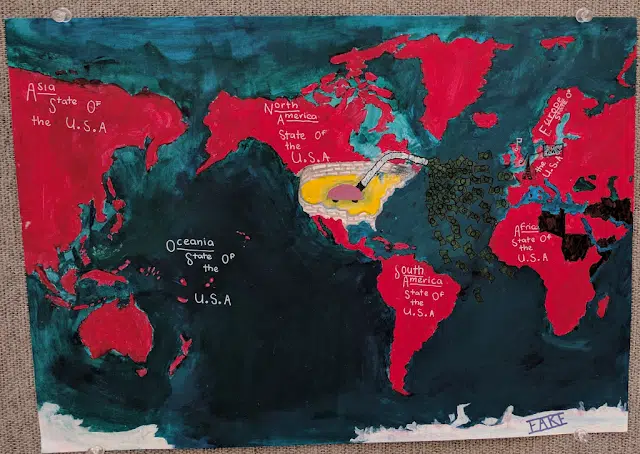 Asia
State OF
the U.S.A
North
America
State OF
the
U.S.A
Oceania
State OF
the
U.S.A
South
America
State OF
the
U.S.A
Africa
State Of
the
U.S.A
Europe
State OF
the
U.S.A
FAKE